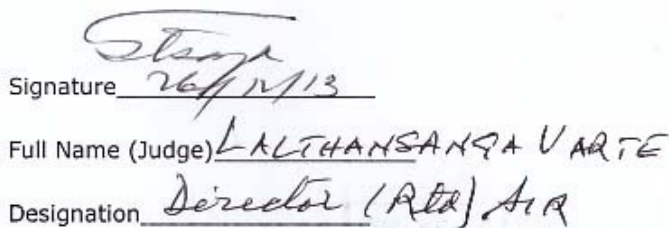 Signature 26/12/13
Full Name (Judge) LALTHANSANGA VARTE
Designation Director (Rtd) AIR